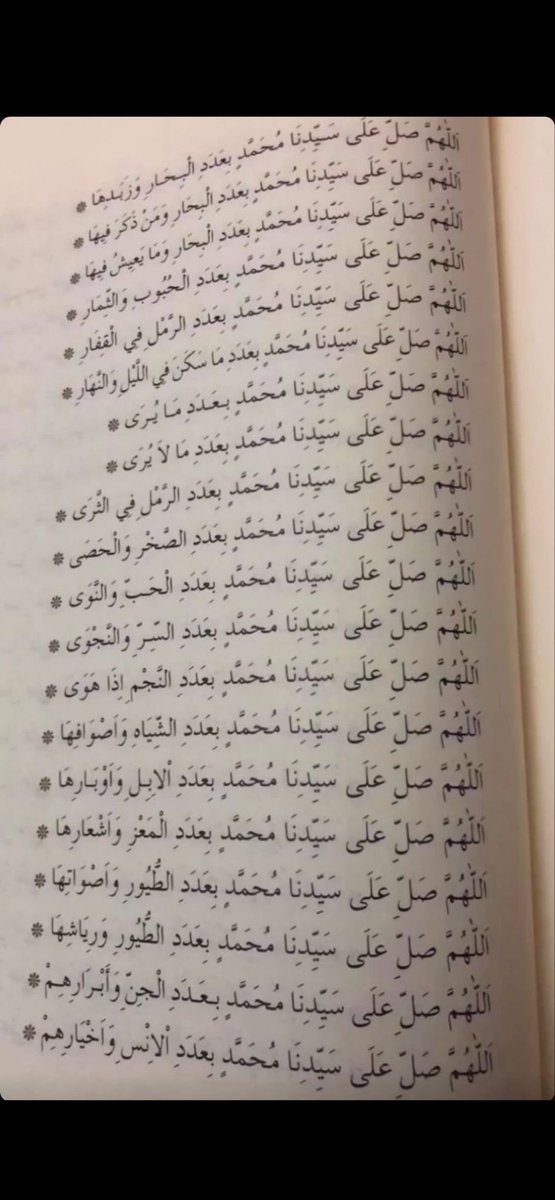 اَللّٰهُمَّ صَلِّ عَلَى سَيِّدِنَا مُحَمَّدٍ بِعَدَدِ الْبِحَارِ وَزَبَدِهَا ❊
اَللّٰهُمَّ صَلِّ عَلَى سَيِّدِنَا مُحَمَّدٍ بِعَدَدِ الْبِحَارِ وَمَنْ ذَكَرَ فِيهَا ❊
اَللّٰهُمَّ صَلِّ عَلَى سَيِّدِنَا مُحَمَّدٍ بِعَدَدِ الْبِحَارِ وَمَا يَعِيشُ فِيهَا ❊
اَللّٰهُمَّ صَلِّ عَلَى سَيِّدِنَا مُحَمَّدٍ بِعَدَدِ الْحُبُوبِ وَالثِّمَارِ ❊
اَللّٰهُمَّ صَلِّ عَلَى سَيِّدِنَا مُحَمَّدٍ بِعَدَدِ الرَّمْلِ فِي الْقِفَارِ ❊
اَللّٰهُمَّ صَلِّ عَلَى سَيِّدِنَا مُحَمَّدٍ بِعَدَدِ مَا سَكَنَ فِي اللَّيْلِ وَالنَّهَارِ ❊
اَللّٰهُمَّ صَلِّ عَلَى سَيِّدِنَا مُحَمَّدٍ بِعَدَدِ مَا يُرَى ❊
اَللّٰهُمَّ صَلِّ عَلَى سَيِّدِنَا مُحَمَّدٍ بِعَدَدِ مَا لاَ يُرَى ❊
اَللّٰهُمَّ صَلِّ عَلَى سَيِّدِنَا مُحَمَّدٍ بِعَدَدِ الرَّمْلِ فِي الثَّرَى ❊
اَللّٰهُمَّ صَلِّ عَلَى سَيِّدِنَا مُحَمَّدٍ بِعَدَدِ الصَّخْرِ وَالْحَصَى ❊
اَللّٰهُمَّ صَلِّ عَلَى سَيِّدِنَا مُحَمَّدٍ بِعَدَدِ الْحَبِّ وَالنَّوَى ❊
اَللّٰهُمَّ صَلِّ عَلَى سَيِّدِنَا مُحَمَّدٍ بِعَدَدِ السِّرِّ وَالنَّجْوَى ❊
اَللّٰهُمَّ صَلِّ عَلَى سَيِّدِنَا مُحَمَّدٍ بِعَدَدِ النَّجْمِ اِذَا هَوَى ❊
اَللّٰهُمَّ صَلِّ عَلَى سَيِّدِنَا مُحَمَّدٍ بِعَدَدِ الشِّيَاهِ وَاَصْوَافِهَا ❊
اَللّٰهُمَّ صَلِّ عَلَى سَيِّدِنَا مُحَمَّدٍ بِعَدَدِ اْلاِبِلِ وَاَوْبَارِهَا ❊
اَللّٰهُمَّ صَلِّ عَلَى سَيِّدِنَا مُحَمَّدٍ بِعَدَدِ الْمَعْزِ وَاَشْعَارِهَا ❊
اَللّٰهُمَّ صَلِّ عَلَى سَيِّدِنَا مُحَمَّدٍ بِعَدَدِ الطُّيُورِ وَاَصْوَاتِهَا ❊
اَللّٰهُمَّ صَلِّ عَلَى سَيِّدِنَا مُحَمَّدٍ بِعَدَدِ الطُّيُورِ وَرِيَاشِهَا ❊
اَللّٰهُمَّ صَلِّ عَلَى سَيِّدِنَا مُحَمَّدٍ بِعَدَدِ الْجِنِّ وَأَبْرَارِهِمْ ❊
اَللّٰهُمَّ صَلِّ عَلَى سَيِّدِنَا مُحَمَّدٍ بِعَدَدِ اْلاِنْسِ وَاَخْيَارِهِمْ ❊